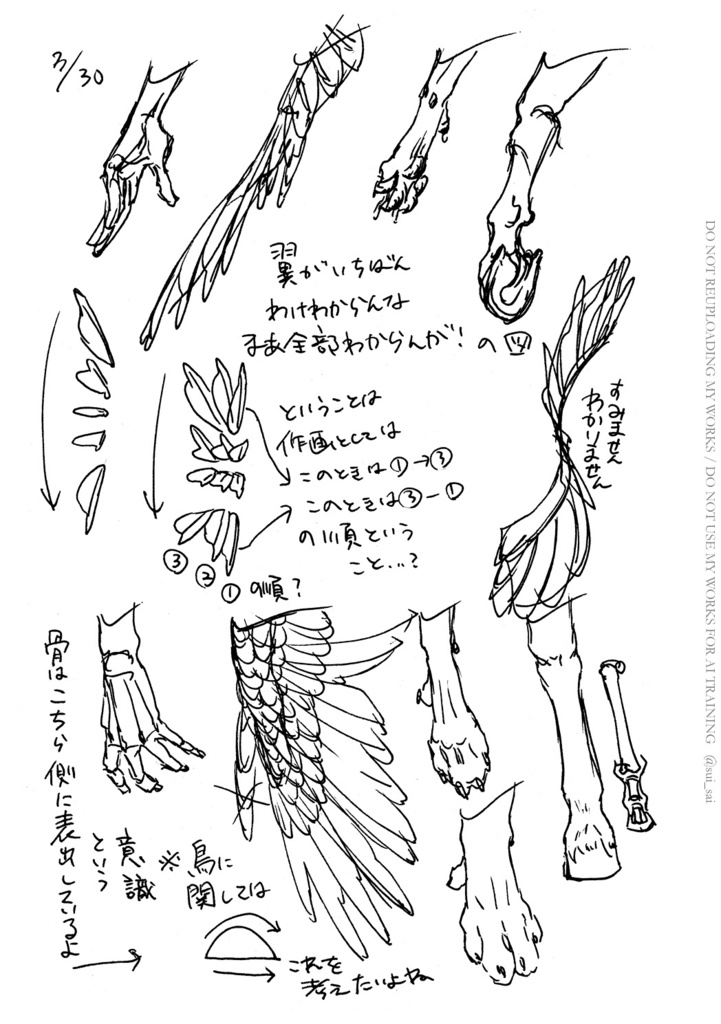 3/30
翼がいちばん
わけわからんな
まあ全部わからんが！の図
すみません
わかりません
ということは
作画としては
このときは①→③
このときは③-①
の順という
こと…?
③ ② ① の順?
骨はこちら側に表出しているよ
という
意識
※鳥に
関しては
これを
考えたいよね
DO NOT REUPLOADING MY WORKS / DO NOT USE MY WORKS FOR AI TRAINING @sui_sai